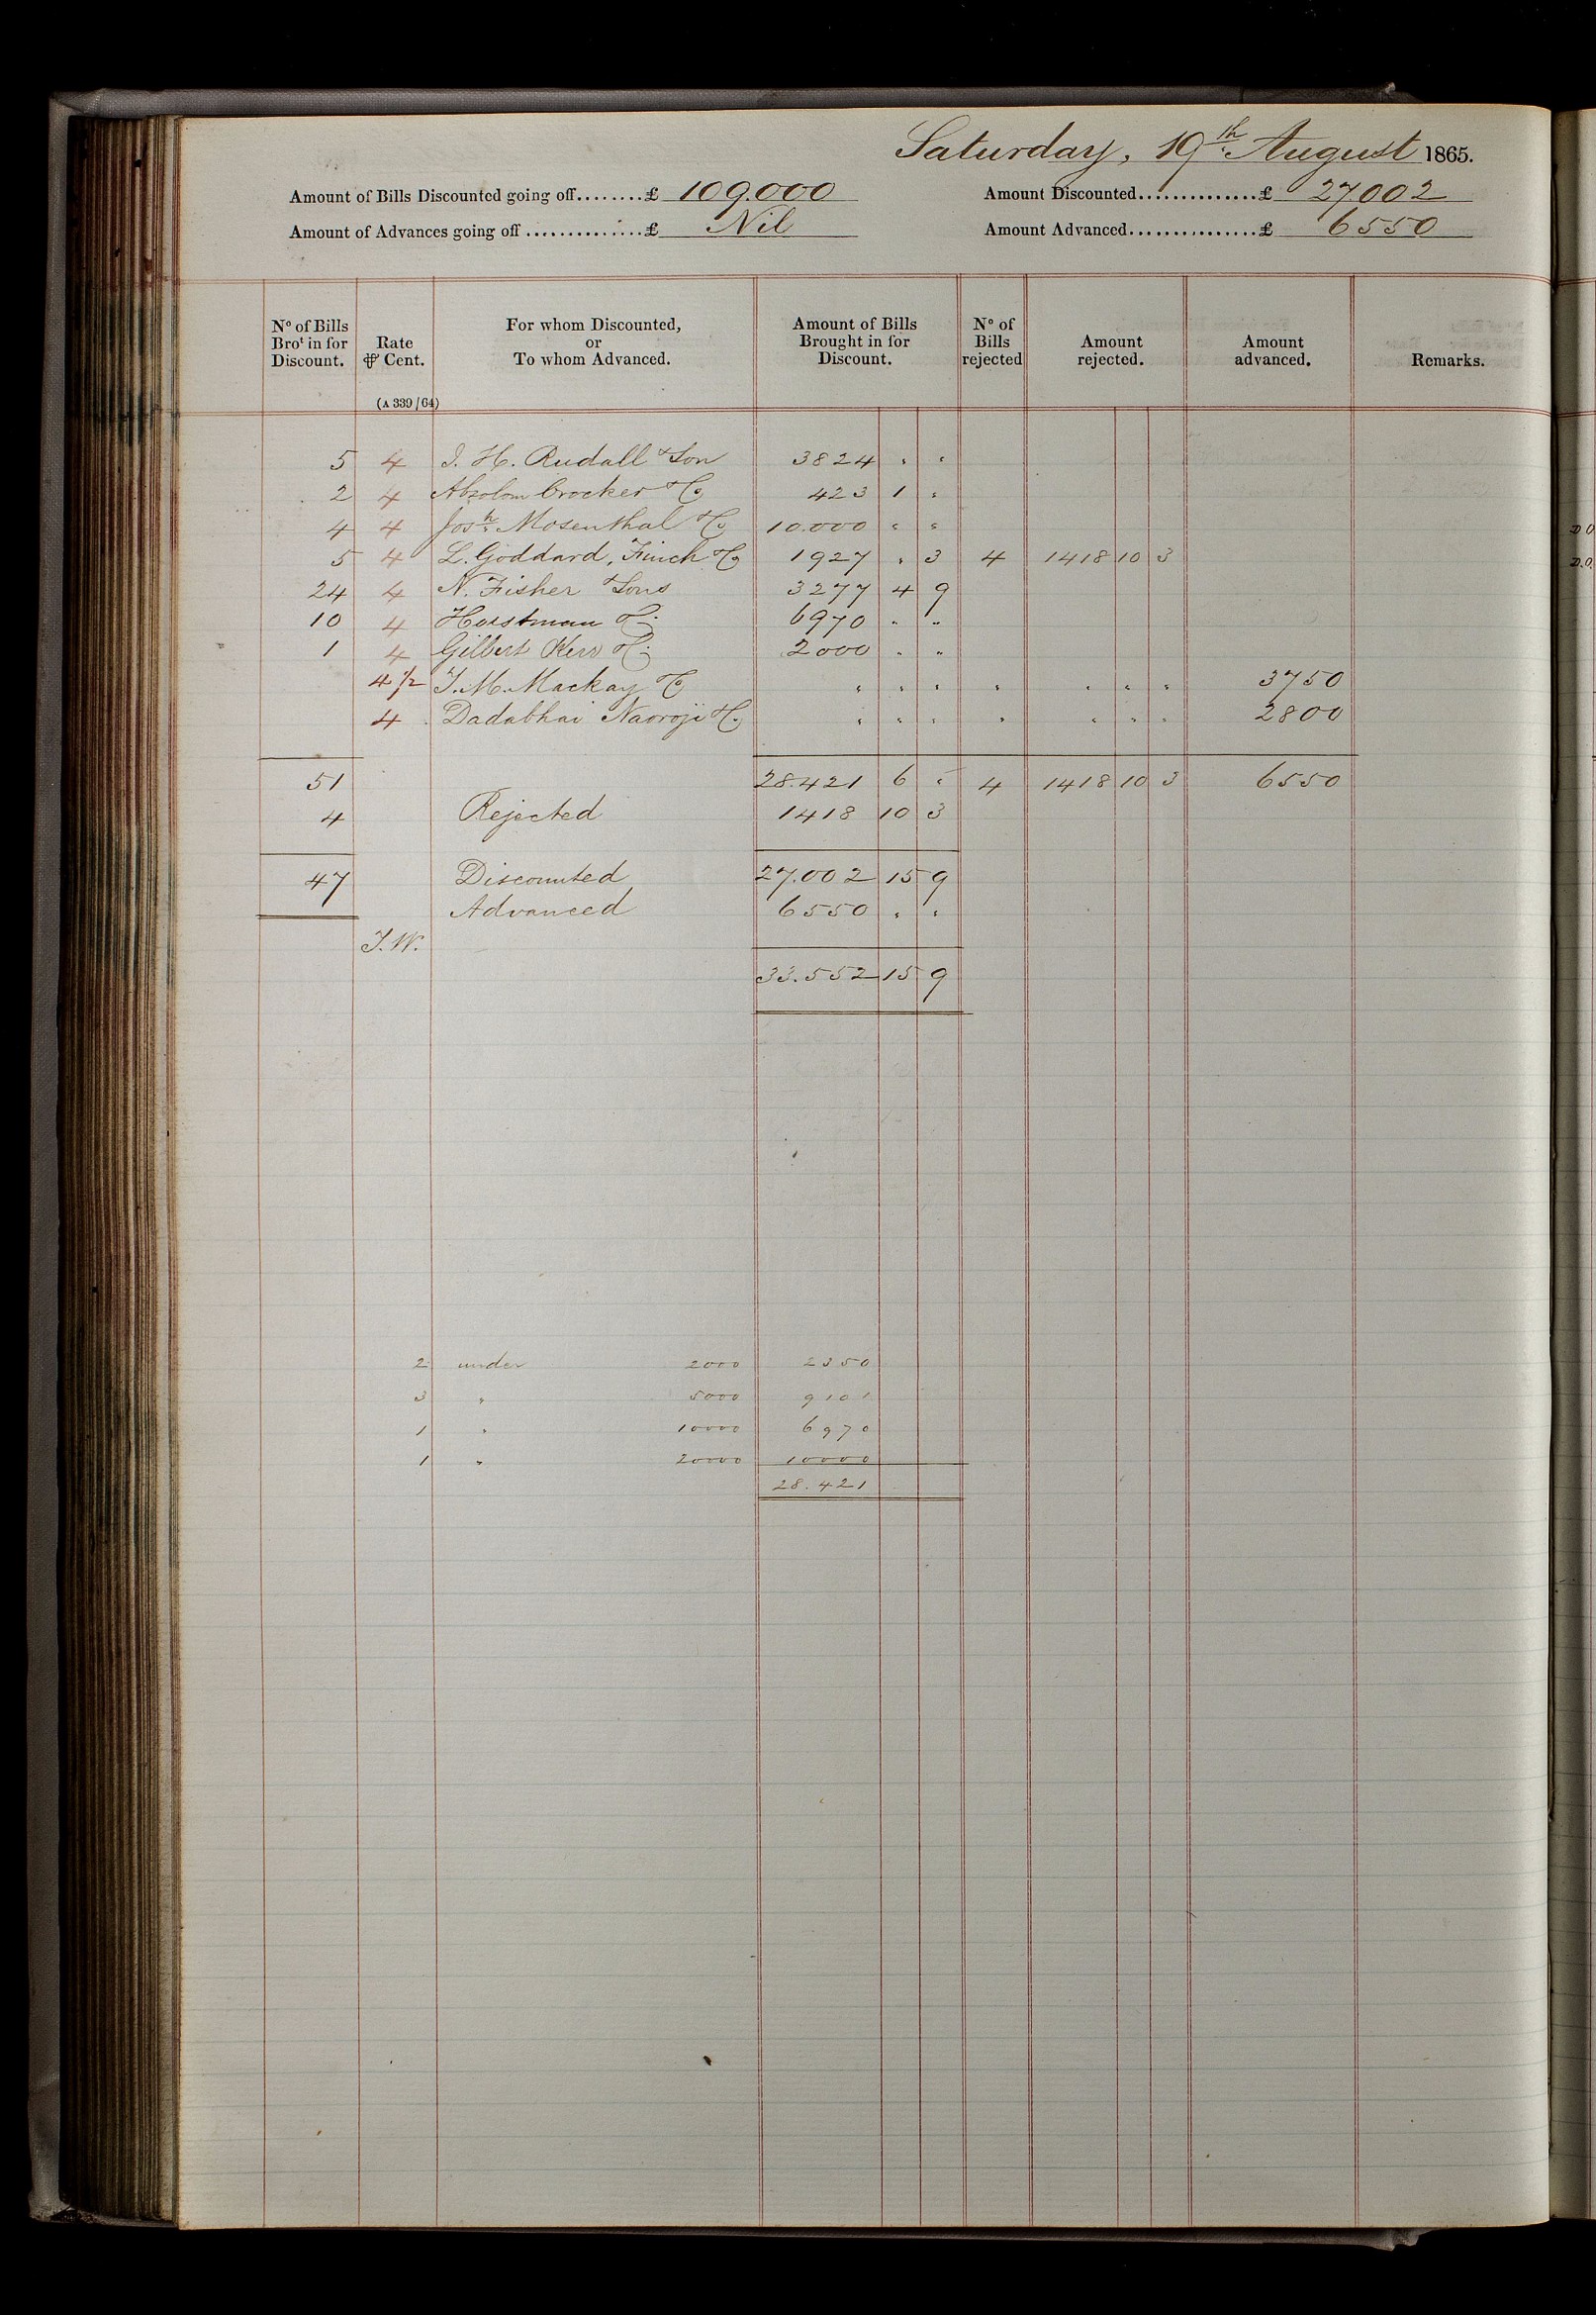 Saturday, 19th August 1865.
Amount of Bills Discounted going off........£ 109.000 Amount Discounted..............£ 27002
Amount of Advances going off..............£ Nil Amount Advanced...............£ 6550
No of Bills Brot in for Discount. Rate ⅌ Cent. (A 339/64) For whom Discounted, or To whom Advanced. Amount of Bills Brought in for Discount. No of Bills rejected Amount rejected. Amount advanced. Remarks.
5 4 J. H. Rudall & Son 3824 " "
2 4 Absolom Crocker & Co 423 1 "
4 4 Josh. Mosenthal & Co 10.000 " "
5 4 L. Goddard, Finch & Co 1927 " 3 4 1418 10 3
24 4 N. Fisher & Sons 3277 4 9
10 4 Horstman & Co. 6970 " "
1 4 Gilbert Kerr & Co. 2000 " "
4 1/2 J. M. Mackay & Co " " " " " " " 3750
4 Dadabhai Naoroji & Co. " " " " " " " 2800
51 28.421 6 " 4 1418 10 3 6550
4 Rejected 1418 10 3
47 Discounted 27.002 15 9
Advanced 6550 " "
J.W.
33.552 15 9
2 under 2000 2350
3 " 5000 9101
1 " 10000 6970
1 " 20000 10000
28.421